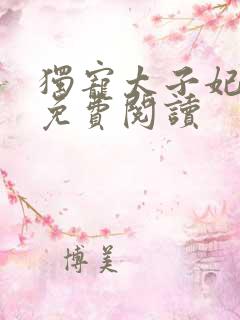 獨寵太子妃
免費閱讀
博美